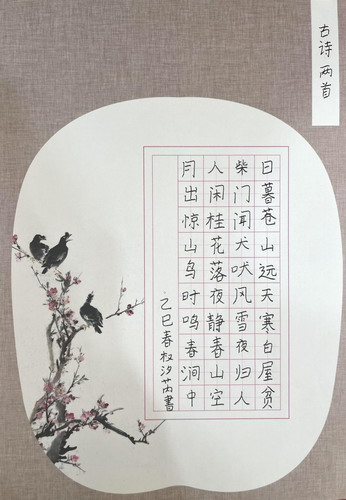 古诗两首
日暮苍山远天寒白屋贫
柴门闻犬吠风雪夜归人
人闲桂花落夜静春山空
月出惊山鸟时鸣春涧中
乙巳春权汐芮書